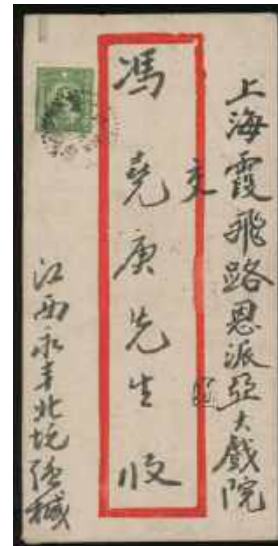 上海霞飛路恩派亞大戲院
交
馮堯庚先生收
江西永丰北坑張緘